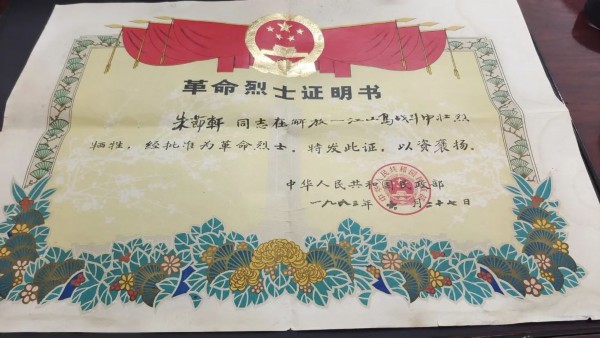 革命烈士证明书
朱节轩 同志在解放一江山岛战斗中壮烈
牺牲，经批准为革命烈士。特发此证，以资褒扬。
中华人民共和国民政部
一九八三年 月二十七日